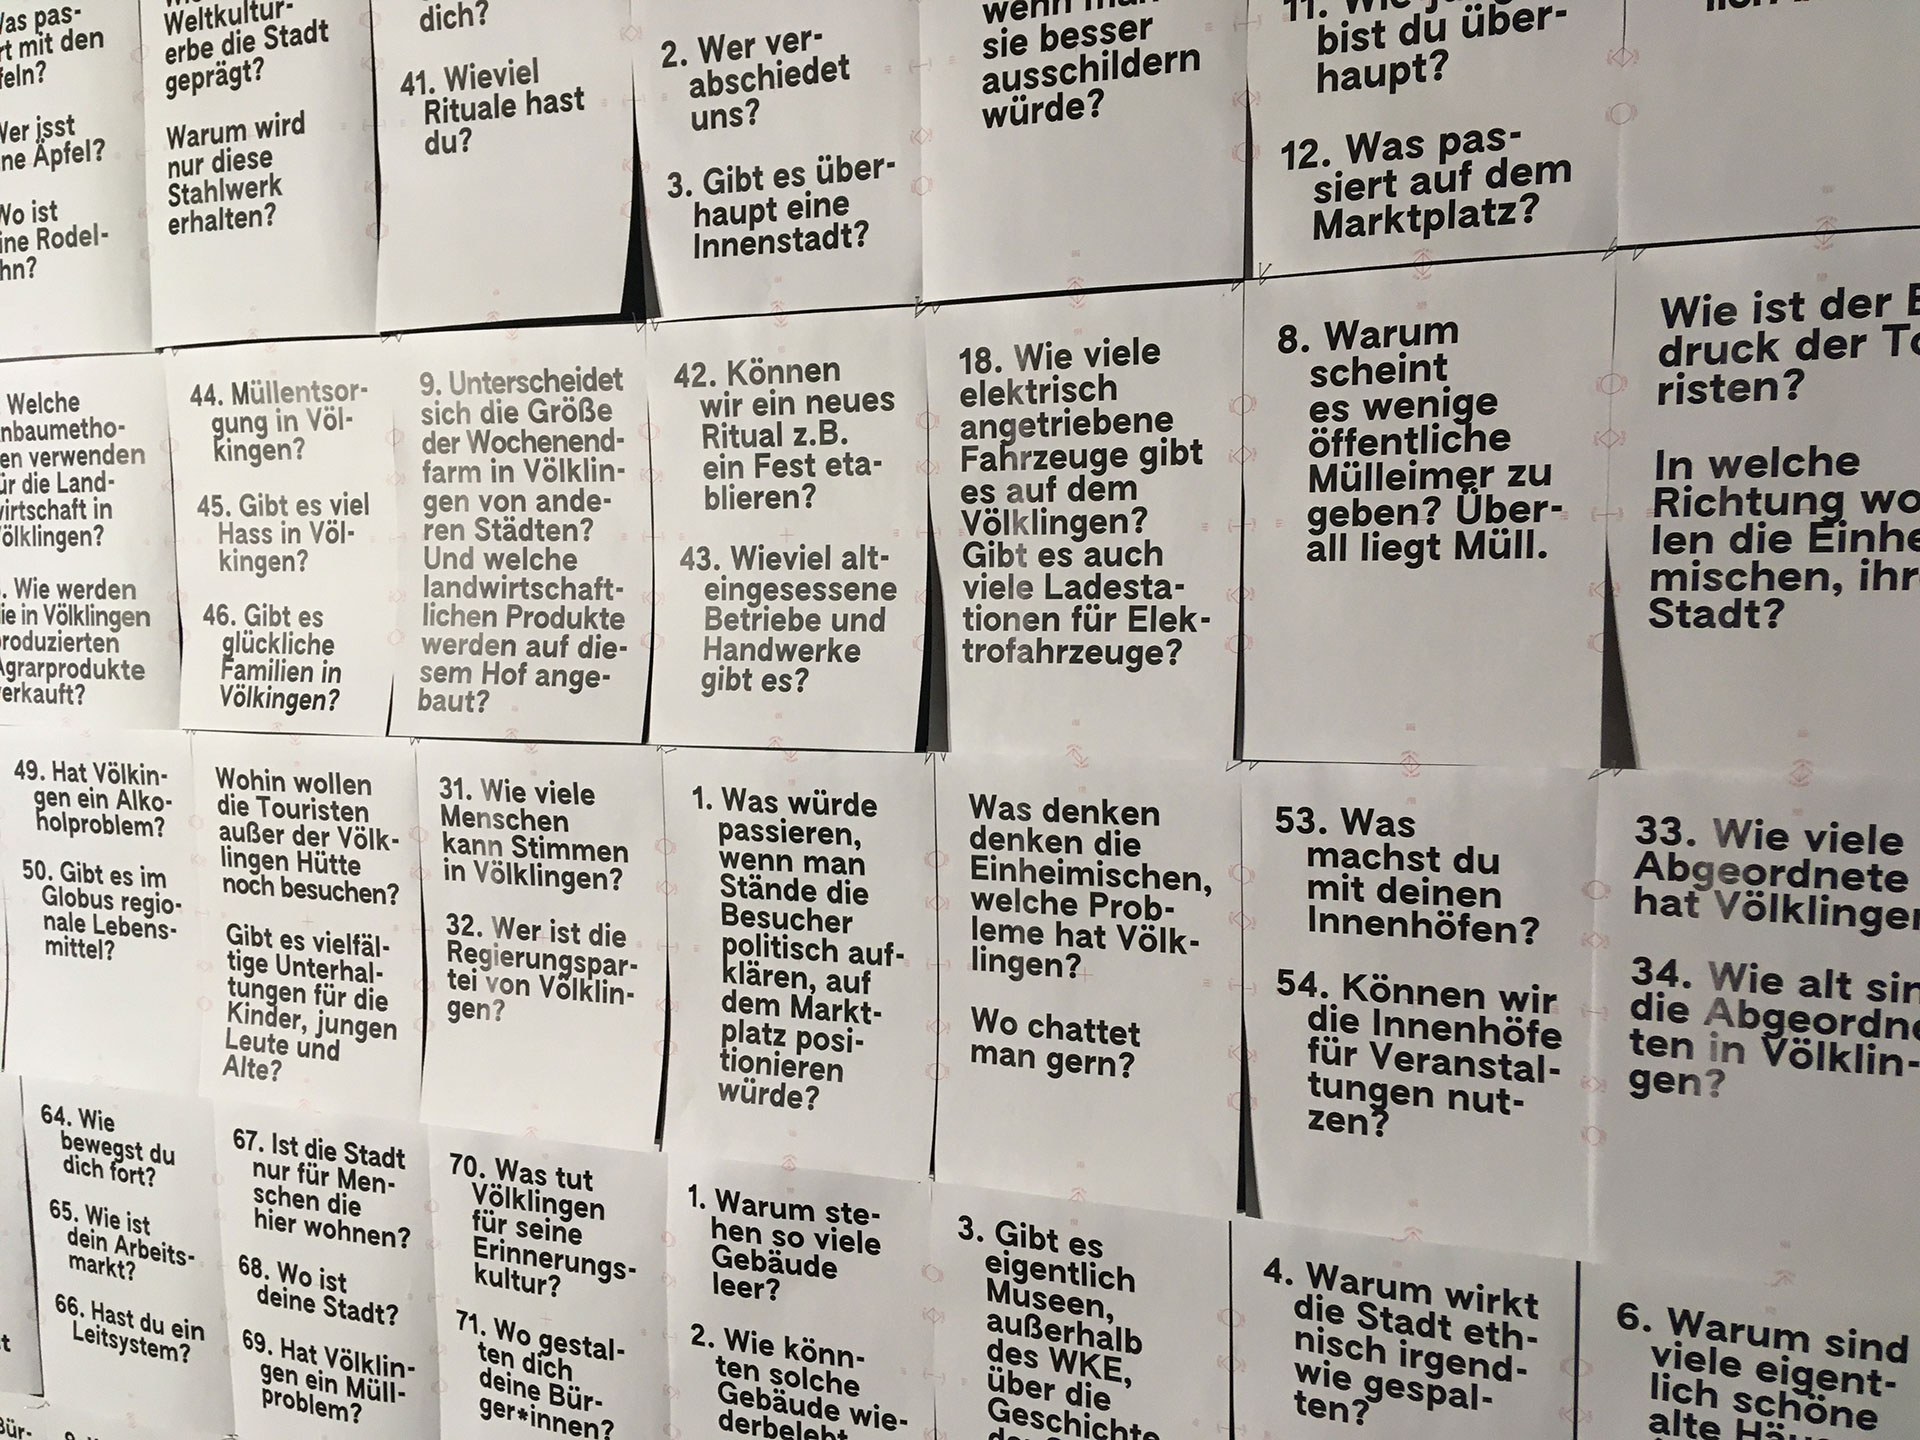 Was pas-
rt mit den
feln?
Wer isst
ne Äpfel?
Wo ist
ine Rodel-
hn?
Weltkultur-
erbe die Stadt
geprägt?
Warum wird
nur diese
Stahlwerk
erhalten?
dich?
41. Wieviel
Rituale hast
du?
2. Wer ver-
abschiedet
uns?
3. Gibt es über-
haupt eine
Innenstadt?
wenn man
sie besser
ausschildern
würde?
bist du über-
haupt?
12. Was pas-
siert auf dem
Marktplatz?
Welche
nbaumetho-
en verwenden
ür die Land-
wirtschaft in
ölklingen?
. Wie werden
ie in Völklingen
produzierten
Agrarprodukte
erkauft?
44. Müllentsor-
gung in Völ-
kingen?
45. Gibt es viel
Hass in Völ-
kingen?
46. Gibt es
glückliche
Familien in
Völkingen?
9. Unterscheidet
sich die Größe
der Wochenend-
farm in Völklin-
gen von ande-
ren Städten?
Und welche
landwirtschaft-
lichen Produkte
werden auf die-
sem Hof ange-
baut?
42. Können
wir ein neues
Ritual z.B.
ein Fest eta-
blieren?
43. Wieviel alt-
eingesessene
Betriebe und
Handwerke
gibt es?
18. Wie viele
elektrisch
angetriebene
Fahrzeuge gibt
es auf dem
Völklingen?
Gibt es auch
viele Ladesta-
tionen für Elek-
trofahrzeuge?
8. Warum
scheint
es wenige
öffentliche
Mülleimer zu
geben? Über-
all liegt Müll.
Wie ist der E
druck der To
risten?
In welche
Richtung wo
len die Einhe
mischen, ihr
Stadt?
49. Hat Völkin-
gen ein Alko-
holproblem?
50. Gibt es im
Globus regio-
nale Lebens-
mittel?
Wohin wollen
die Touristen
außer der Völk-
lingen Hütte
noch besuchen?
Gibt es vielfäl-
tige Unterhal-
tungen für die
Kinder, jungen
Leute und
Alte?
31. Wie viele
Menschen
kann Stimmen
in Völklingen?
32. Wer ist die
Regierungspar-
tei von Völklin-
gen?
1. Was würde
passieren,
wenn man
Stände die
Besucher
politisch auf-
klären, auf
dem Markt-
platz posi-
tionieren
würde?
Was denken
denken die
Einheimischen,
welche Prob-
leme hat Völk-
lingen?
Wo chattet
man gern?
53. Was
machst du
mit deinen
Innenhöfen?
54. Können wir
die Innenhöfe
für Veranstal-
tungen nut-
zen?
33. Wie viele
Abgeordnete
hat Völklinger
34. Wie alt sin
die Abgeordne
ten in Völklin-
gen?
64. Wie
bewegst du
dich fort?
65. Wie ist
dein Arbeits-
markt?
66. Hast du ein
Leitsystem?
67. Ist die Stadt
nur für Men-
schen die
hier wohnen?
68. Wo ist
deine Stadt?
69. Hat Völklin-
gen ein Müll-
problem?
70. Was tut
Völklingen
für seine
Erinnerungs-
kultur?
71. Wo gestal-
ten dich
deine Bür-
ger*innen?
1. Warum ste-
hen so viele
Gebäude
leer?
2. Wie könn-
ten solche
Gebäude wie-
derbelebt
3. Gibt es
eigentlich
Museen,
außerhalb
des WKE,
über die
Geschichte
4. Warum wirkt
die Stadt eth-
nisch irgend-
wie gespal-
ten?
6. Warum sind
viele eigent-
lich schöne
alte Häu